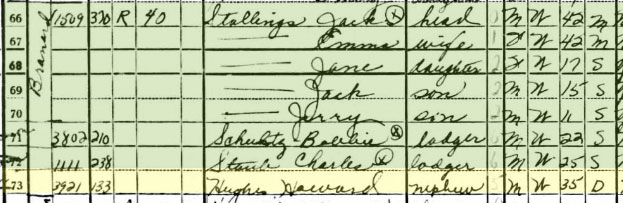 66 1509 370 R 40 Stallings Jack ⓧ head 0 M W 42 M
67 — Emma wife 1 F W 42 M
68 — Jane daughter 2 F W 17 S
69 — Jack son 2 M W 15 S
70 — Jerry son 2 M W 11 S
71 3802 210 Schultz ⓧ lodger 6 M W 22 S
72 1111 238 Staub Charles ⓧ lodger 6 M W 25 S
73 3921 133 Hughes Howard nephew 5 M W 35 D